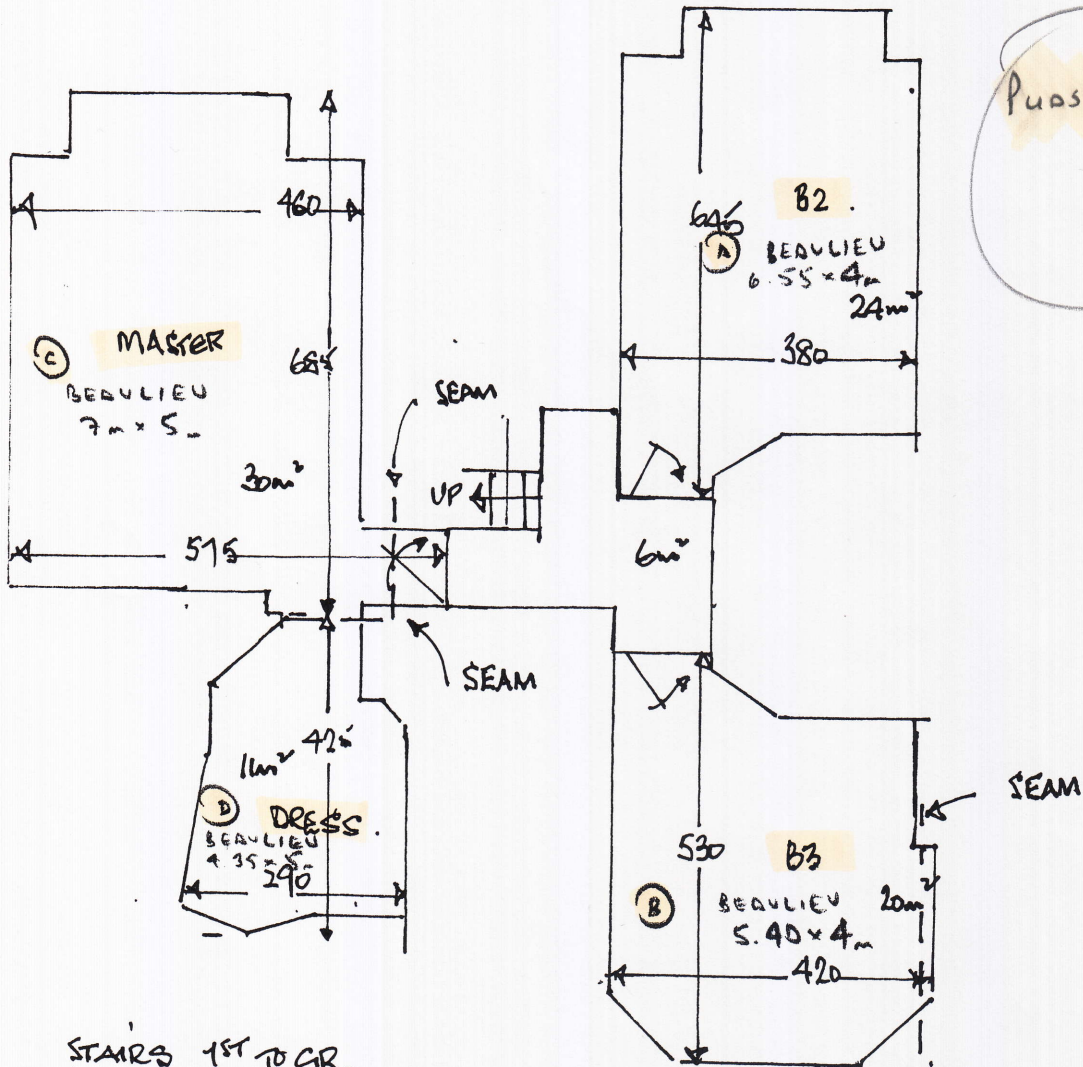 460
C
MASTER
BEAULIEU
7m x 5m
685
30m²
575
SEAM
UP
SEAM
645
B2.
A
BEAULIEU
6.55 x 4m
24m²
380
6m²
425
11m²
D
DRESS.
BEAULIEU
4.35 x 5m
290
530
B3
SEAM
B
BEAULIEU
5.40 x 4m
20m²
420
STAIRS 1ST TO GR